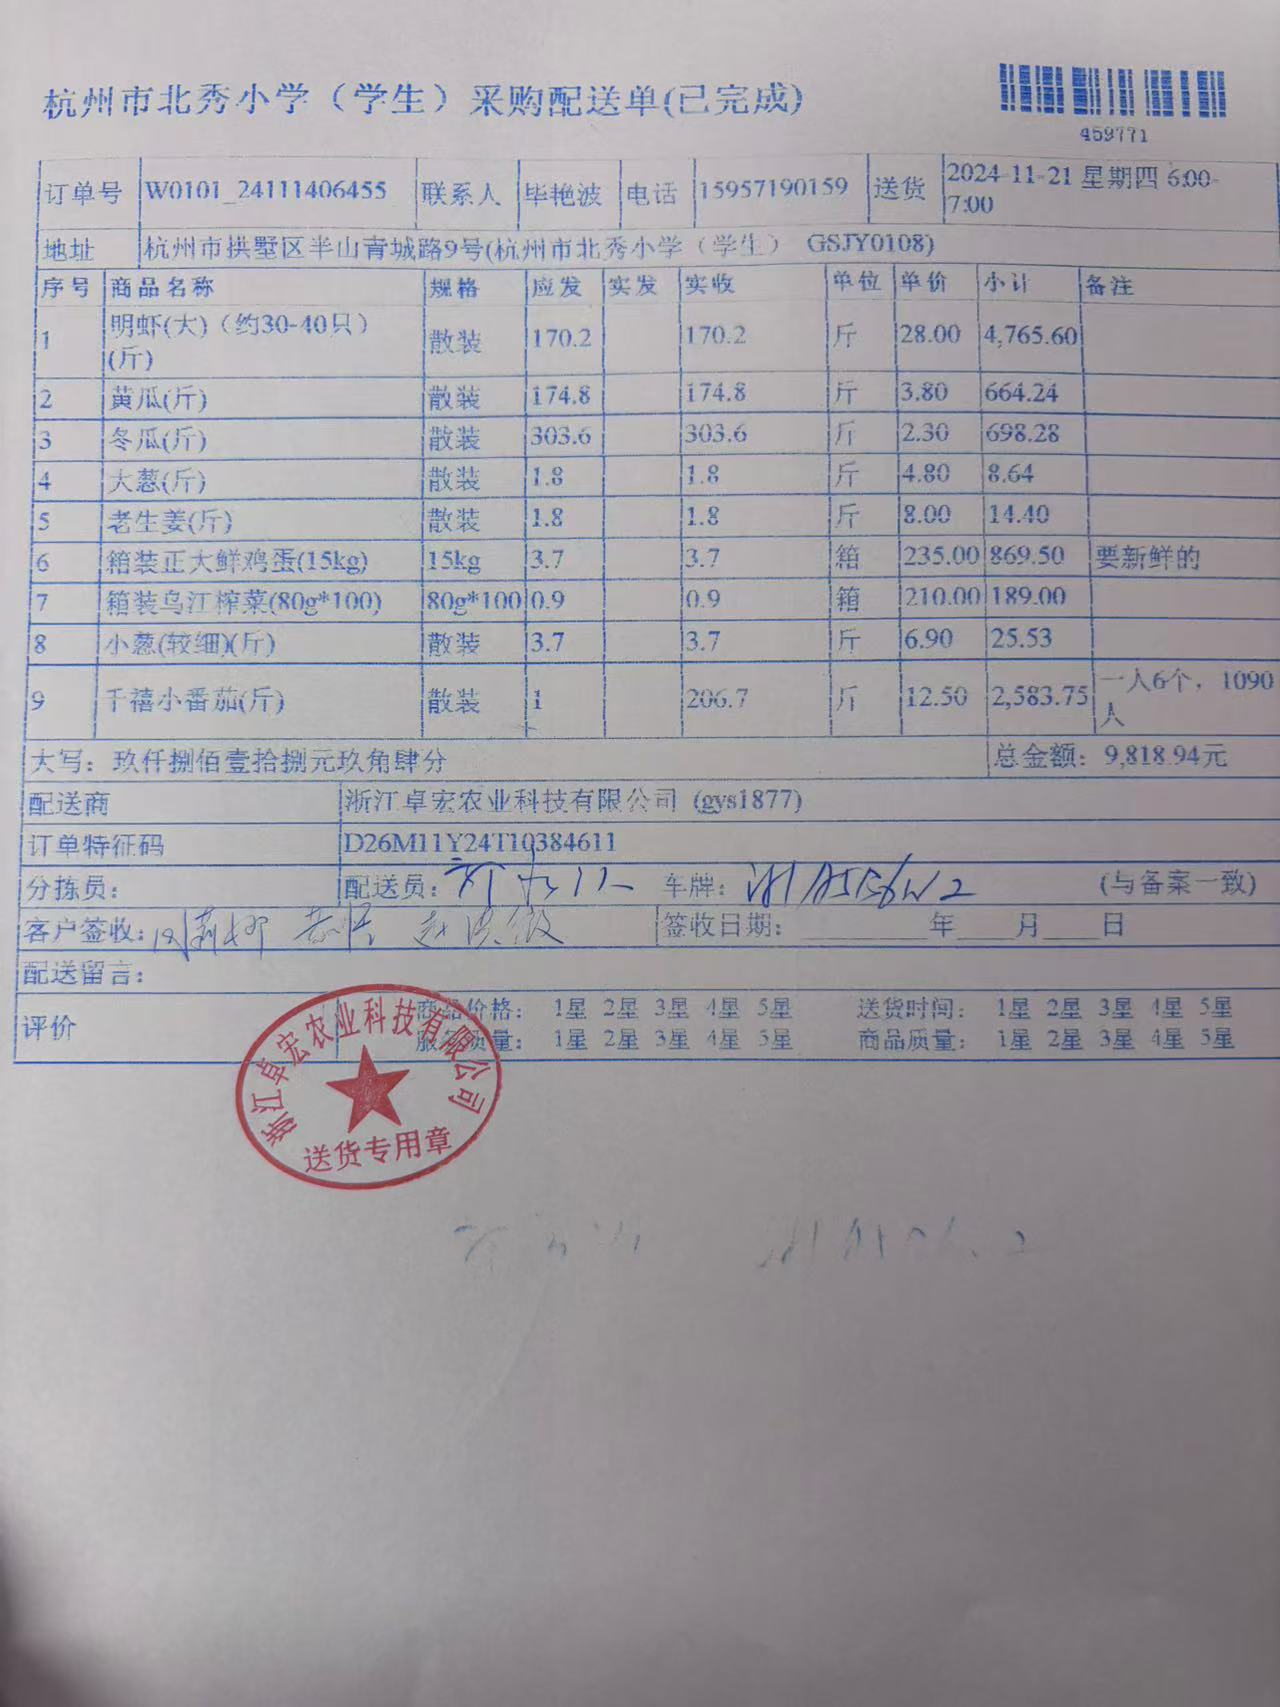 杭州市北秀小学（学生）采购配送单(已完成)
459771
订单号 W0101_24111406455 联系人 毕艳波 电话 15957190159 送货 2024-11-21 星期四 6:00-
7:00
地址 杭州市拱墅区半山青城路9号(杭州市北秀小学（学生） GSJY0108)
序号 商品名称 规格 应发 实发 实收 单位 单价 小计 备注
1 明虾(大)（约30-40只） 散装 170.2 170.2 斤 28.00 4,765.60
(斤)
2 黄瓜(斤) 散装 174.8 174.8 斤 3.80 664.24
3 冬瓜(斤) 散装 303.6 303.6 斤 2.30 698.28
4 大葱(斤) 散装 1.8 1.8 斤 4.80 8.64
5 老生姜(斤) 散装 1.8 1.8 斤 8.00 14.40
6 箱装正大鲜鸡蛋(15kg) 15kg 3.7 3.7 箱 235.00 869.50 要新鲜的
7 箱装乌江榨菜(80g*100) 80g*100 0.9 0.9 箱 210.00 189.00
8 小葱(较细)(斤) 散装 3.7 3.7 斤 6.90 25.53
9 千禧小番茄(斤) 散装 1 206.7 斤 12.50 2,583.75 一人6个，1090
人
大写：玖仟捌佰壹拾捌元玖角肆分 总金额：9,818.94元
配送商 浙江卓宏农业科技有限公司 (gys1877)
订单特征码 D26M11Y24T10384611
分拣员： 配送员： 车牌： (与备案一致)
客户签收： 签收日期： ______年____月____日
配送留言：
评价 商品价格： 1星 2星 3星 4星 5星 送货时间： 1星 2星 3星 4星 5星
服务质量： 1星 2星 3星 4星 5星 商品质量： 1星 2星 3星 4星 5星
浙江卓宏农业科技有限公司
送货专用章